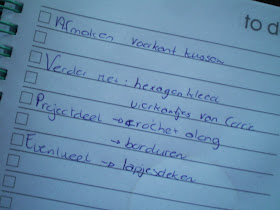 to d
Afmaken vierkant kussen
Verder met: hexagon kleed
vierkantjes van Corrie
Projectdeel → crochet along
→ borduren
Eventueel → lapjesdeken